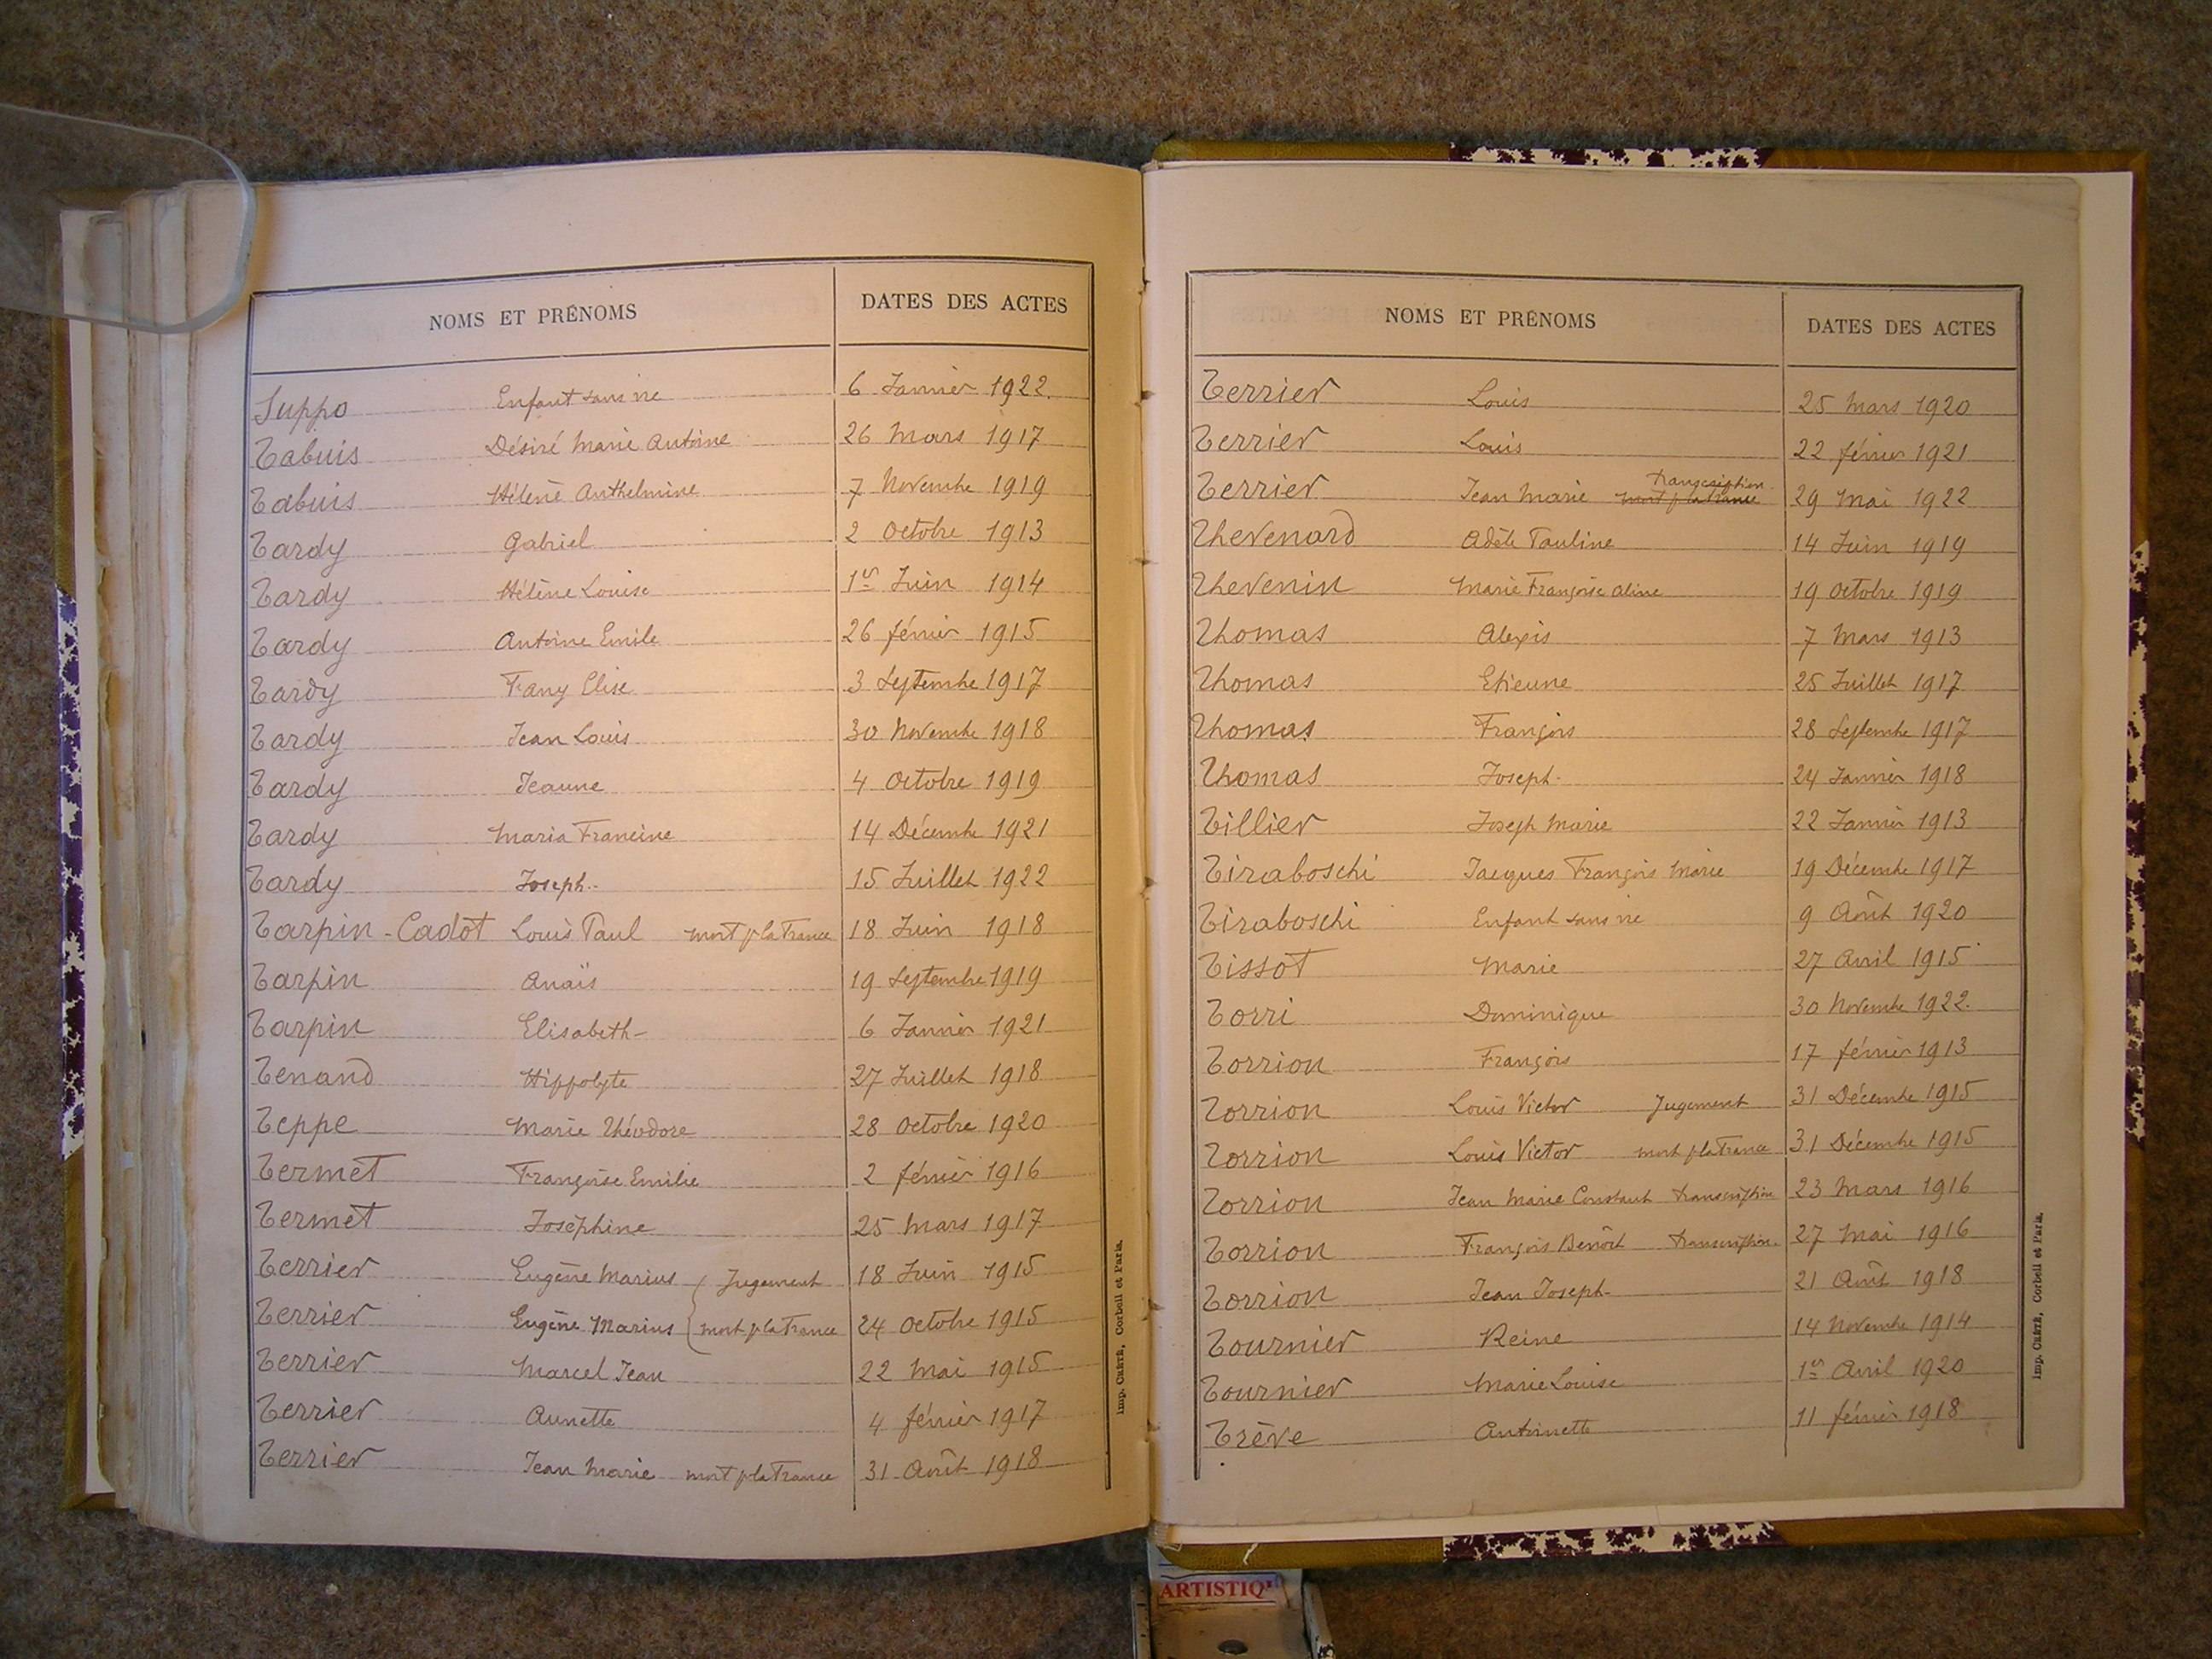 NOMS ET PRÉNOMS DATES DES ACTES
Suppo Enfant sans vie 6 Janvier 1922.
Tabuis Désiré Marie Antoine 26 Mars 1917
Tabuis Hélène Anthelmine 7 Novembre 1919
Tardy Gabriel 2 Octobre 1913
Tardy Hélène Louise 1er Juin 1914
Tardy Antoine Emile 26 février 1915
Tardy Fany Elise 3 Septembre 1917
Tardy Jean Louis 30 Novembre 1918
Tardy Jeanne 4 Octobre 1919
Tardy Maria Francine 14 Décembre 1921
Tardy Joseph 15 Juillet 1922
Tarpin-Cadot Louis Paul mort p la France 18 Juin 1918
Tarpin Anaïs 19 Septembre 1919
Tarpin Elisabeth 6 Janvier 1921
Tenand Hippolyte 27 Juillet 1918
Teppe Marie Théodore 28 Octobre 1920
Termet Françoise Emilie 2 février 1916
Termet Joséphine 25 Mars 1917
Terrier Eugène Marius Jugement 18 Juin 1915
Terrier Eugène Marius mort p la France 24 Octobre 1915
Terrier Marcel Jean 22 Mai 1915
Terrier Annette 4 février 1917
Terrier Jean Marie mort p la France 31 Août 1918
Imp. CRÉTÉ, Corbeil et Paris.
NOMS ET PRÉNOMS DATES DES ACTES
Terrier Louis 25 Mars 1920
Terrier Louis 22 février 1921
Terrier Jean Marie mort p la France transcription 29 Mai 1922
Thevenard Adèle Pauline 14 Juin 1919
Thevenin Marie Françoise Aline 19 Octobre 1919
Thomas Alexis 7 Mars 1913
Thomas Etienne 25 Juillet 1917
Thomas François 28 Septembre 1917
Thomas Joseph 24 Janvier 1918
Tillier Joseph Marie 22 Janvier 1913
Tiraboschi Jacques François Marie 19 Décembre 1917
Tiraboschi Enfant sans vie 9 Août 1920
Tissot Marie 27 Avril 1915
Torri Dominique 30 Novembre 1922.
Torrion François 17 février 1913
Torrion Louis Victor Jugement 31 Décembre 1915
Torrion Louis Victor mort p la France 31 Décembre 1915
Torrion Jean Marie Constant transcription 23 Mars 1916
Torrion François Benoît transcription 27 Mai 1916
Torrion Jean Joseph 21 Août 1918
Tournier Reine 14 Novembre 1914
Tournier Marie Louise 1er Avril 1920
Trève Antoinette 11 février 1918
Imp. CRÉTÉ, Corbeil et Paris.
ARTISTIQ